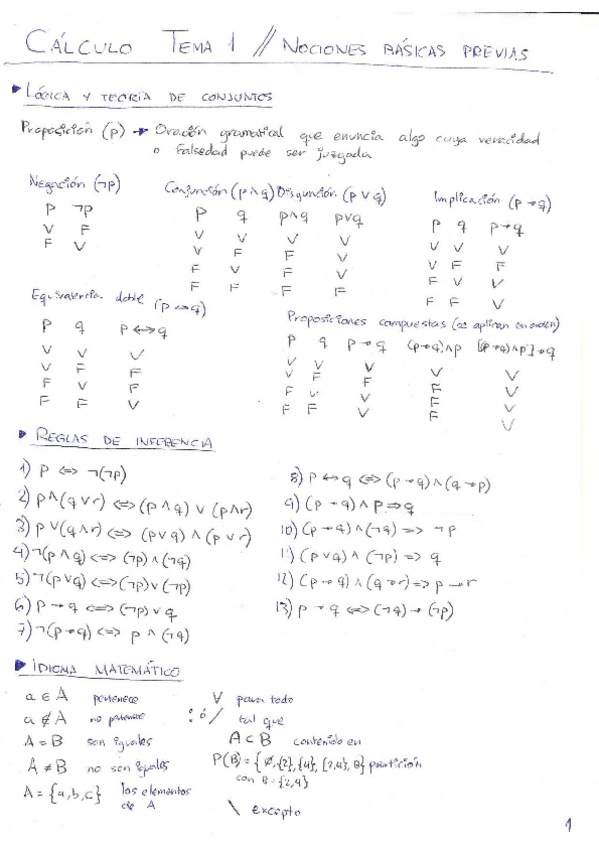 CÁLCULO TEMA 1 // NOCIONES BÁSICAS PREVIAS
LÓGICA Y TEORÍA DE CONJUNTOS
Proposición (p) → Oración gramatical que enuncia algo cuya veracidad
o falsedad puede ser juzgada
Negación (¬p)
P ¬p
V F
F V
Conjunción (p ∧ q) Disyunción (p ∨ q)
P q p∧q p∨q
V V V V
V F F V
F V F V
F F F F
Implicación (p → q)
P q p→q
V V V
V F F
F V V
F F V
Equivalencia doble (p ↔ q)
P q p↔q
V V V
V F F
F V F
F F V
Proposiciones compuestas (se aplican en orden)
P q p→q (p→q)∧p [(p→q)∧p]→q
V V V V V
V F F F V
F V V F V
F F V F V
REGLAS DE INFERENCIA
1) p <=> ¬(¬p)
2) p∧(q∨r) <=> (p∧q) ∨ (p∧r)
3) p∨(q∧r) <=> (p∨q) ∧ (p∨r)
4) ¬(p∧q) <=> (¬p)∧(¬q)
5) ¬(p∨q) <=> (¬p)∨(¬p)
6) p→q <=> (¬p)∨q
7) ¬(p→q) <=> p∧(¬q)
8) p↔q <=> (p→q)∧(q→p)
9) (p→q)∧p => q
10) (p→q)∧(¬q) => ¬p
11) (p∨q)∧(¬p) => q
12) (p→q)∧(q→r) => p→r
13) p→q <=> (¬q)→(¬p)
IDIOMA MATEMÁTICO
a ∈ A pertenece
a ∉ A no pertenece
A = B son iguales
A ≠ B no son iguales
A = {a,b,c} los elementos
de A
∀ para todo
: ó / tal que
A ⊂ B contenido en
P(B) = {∅, {2}, {4}, {2,4}, B} partición
con B = {2,4}
\ excepto
1